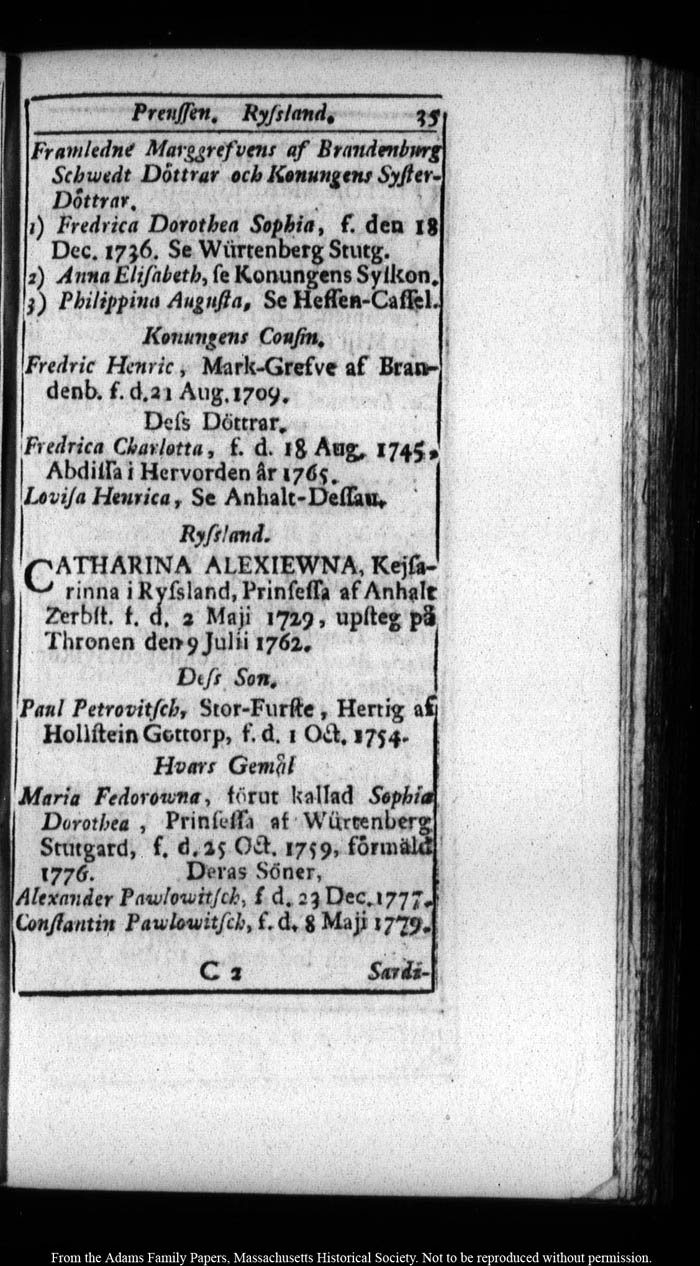 Preuſſen. Ryſsland. 35
Framledne Marggrefvens af Brandenburg
Schwedt Döttrar och Konungens Syſter-
Döttrar.
1) Fredrica Dorothea Sophia, f. den 18
Dec. 1736. Se Würtenberg Stutg.
2) Anna Eliſabeth, ſe Konungens Syſkon.
3) Philippina Auguſta, Se Heſſen-Caſſel.
Konungens Couſin.
Fredric Henric, Mark-Grefve af Bran-
denb. f. d. 21 Aug. 1709.
Deſs Döttrar.
Fredrica Charlotta, f. d. 18 Aug. 1745,
Abdiſſa i Hervorden år 1765.
Loviſa Henrica, Se Anhalt-Deſſau.
Ryſsland.
CATHARINA ALEXIEWNA, Kejſa-
rinna i Ryſsland, Prinſeſſa af Anhalt
Zerbſt. f. d. 2 Maji 1729, upſteg på
Thronen den 9 Julii 1762.
Deſs Son.
Paul Petrovitſch, Stor-Furſte, Hertig af
Hollſtein Gottorp, f. d. 1 Oct. 1754.
Hvars Gemål
Maria Fedorowna, förut kallad Sophia
Dorothea, Prinſeſſa af Würtenberg
Stutgard, f. d. 25 Oct. 1759, förmäld
1776. Deras Söner,
Alexander Pawlowitſch, f d. 23 Dec. 1777.
Conſtantin Pawlowitſch, f. d. 8 Maji 1779.
C 2 Sardi-
From the Adams Family Papers, Massachusetts Historical Society. Not to be reproduced without permission.